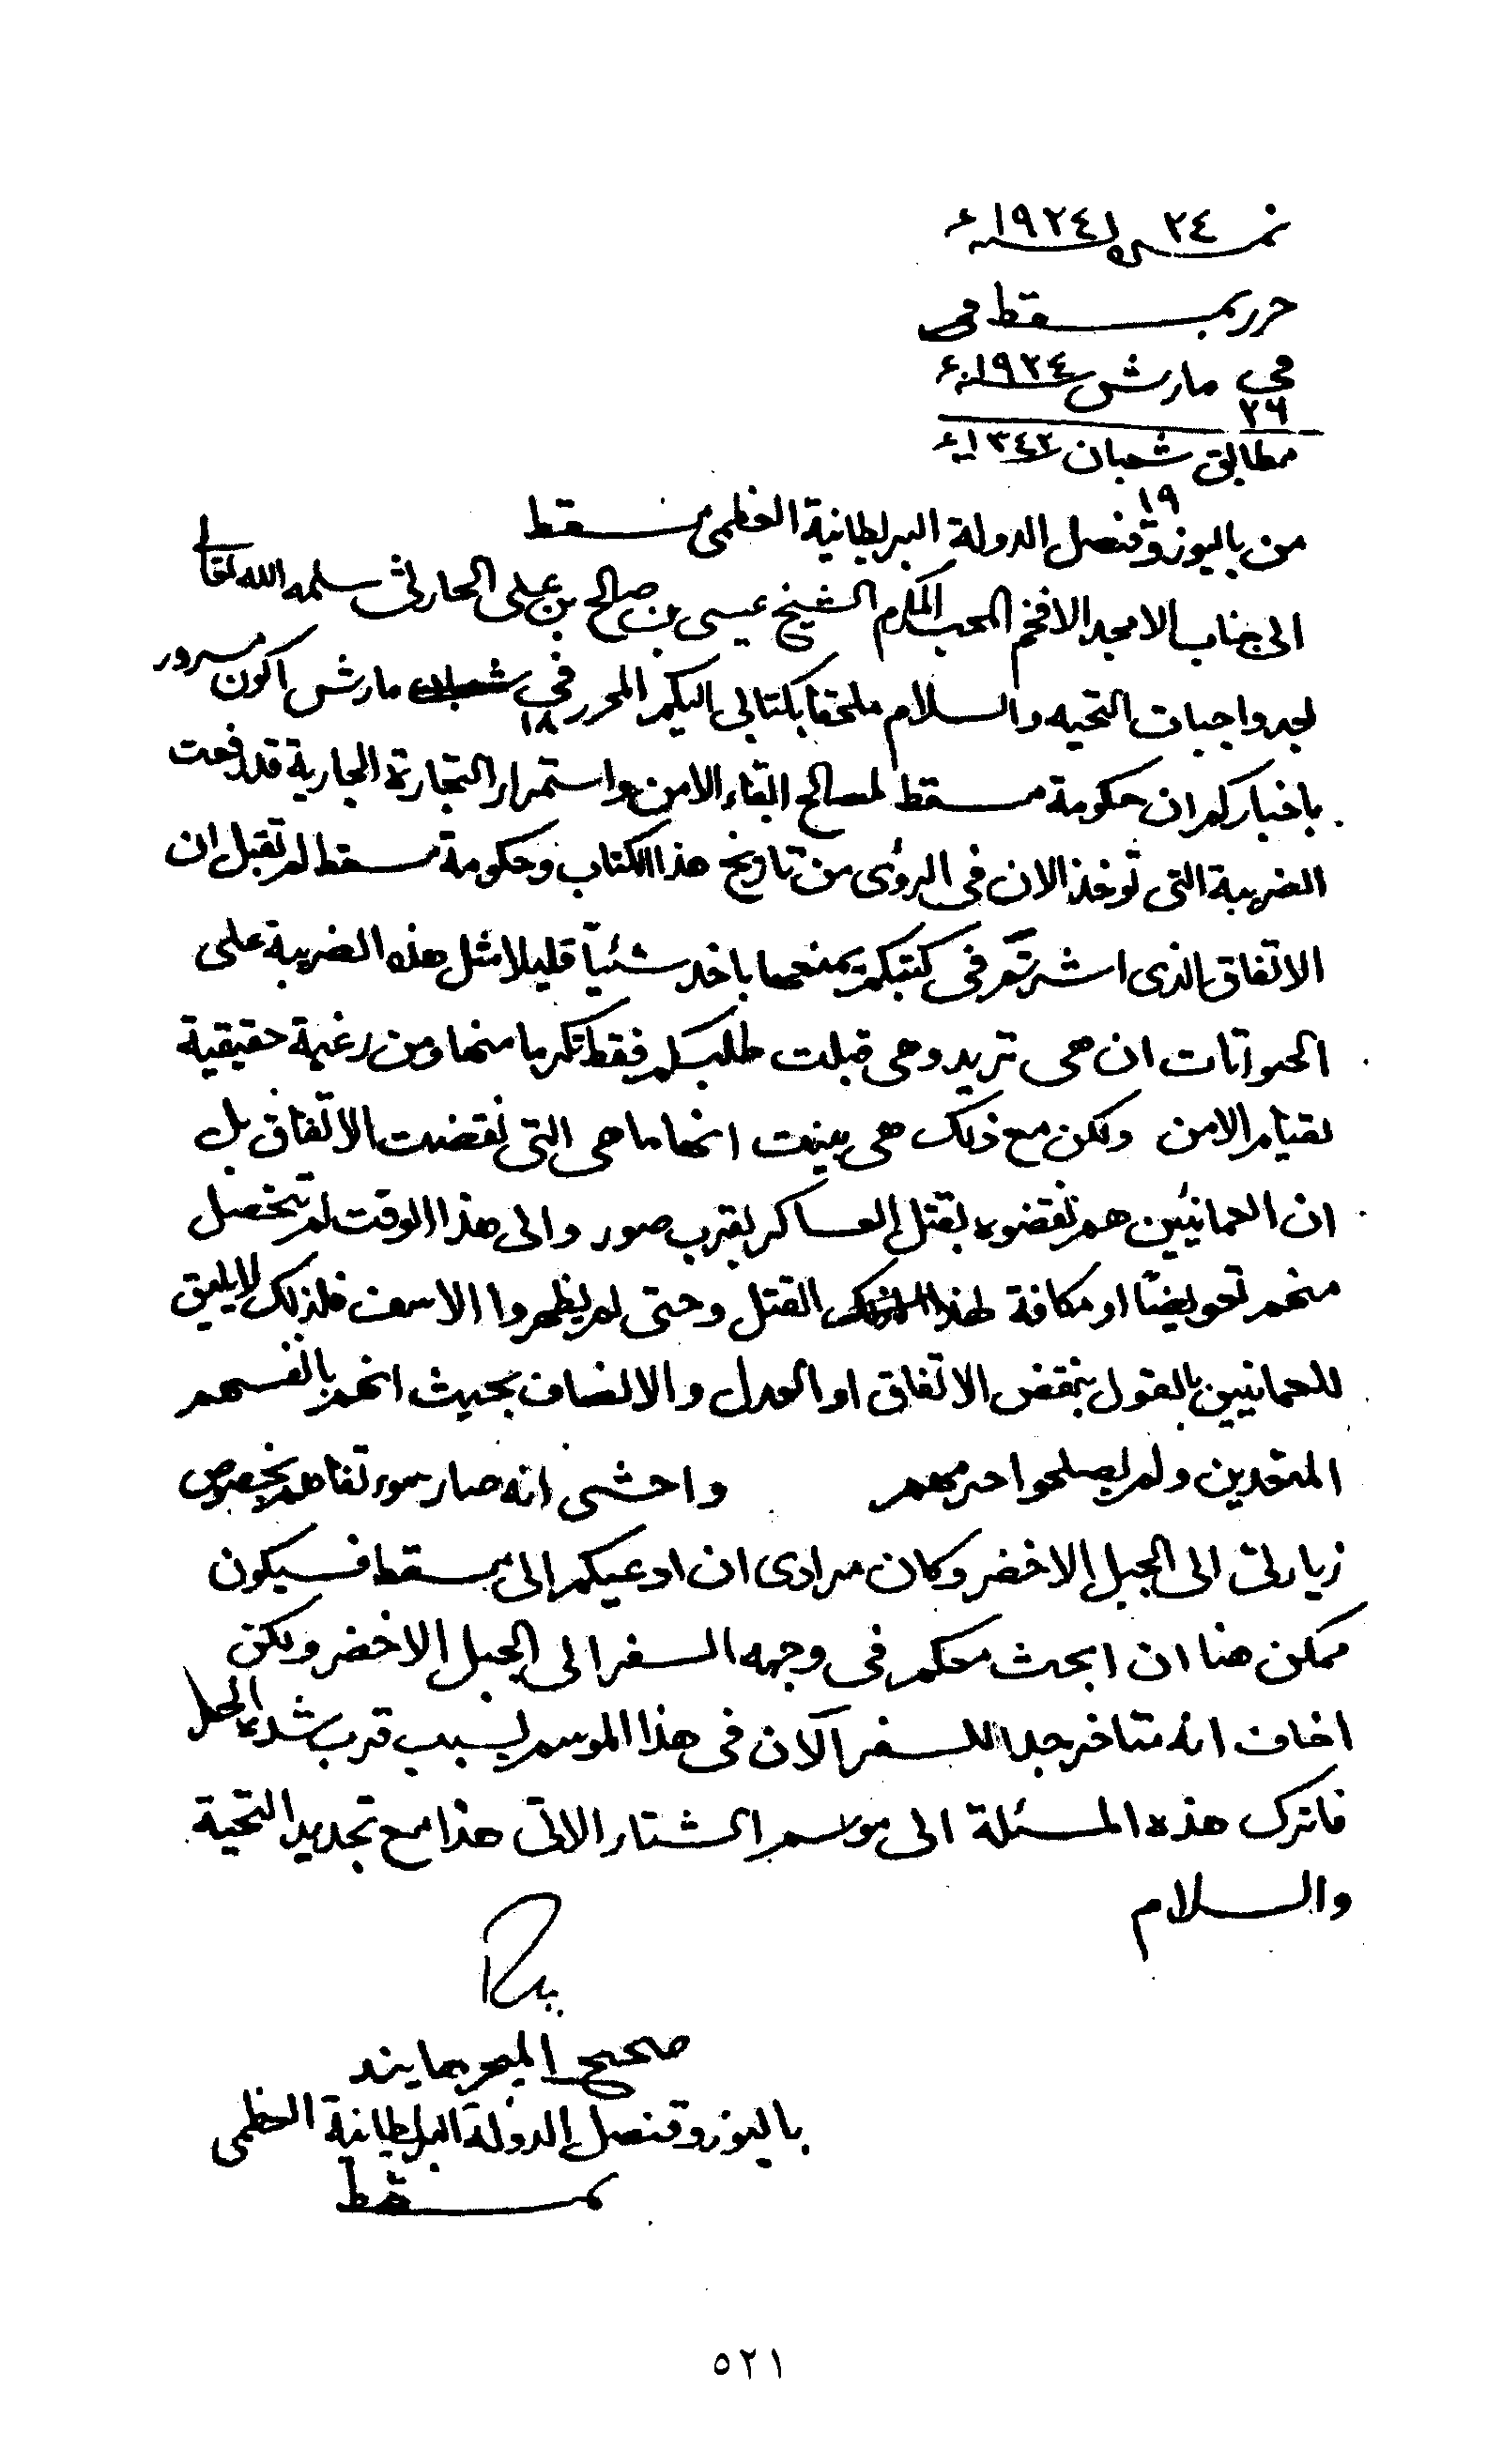 نمـــرہ ٢٤ سنة ١٩٢٤ء
حرر بمسقط في
في ٢٦ مارش سنة ١٩٢٤ء
مطابق ١٩ شعبان ١٣٤٢ء
من باليوز وقنصل الدولة البرلطانية العظمى مسقط
الى جناب الامجد الافخم المحب المكرم الشيخ عيسى بن صالح بن علي الحارثي سلمه الله تعالى
بعد واجبات التحيه والسلام ملحقا بكتابي اليكم المحرر في ١٨ مارش اكون مسرور
باخباركم ان حكومة مسقط لمصالح ابقاء الامن واستمرار التجارة الجارية قد رفعت
الضريبة التى توخذ الان فى الروى من تاريخ هذا الكتاب وحكومة مسقط لم تقبل ان
الاتفاق الذى اشرتم فى كتبكم يمنعها باخد شئياً قليلا مثل هذه الضريبة على
الحوانات ان هى تريد وهى قبلت طلبكم فقط تكرما منها ومن رغبة حقيقية
لقيام الامن ولكن مع ذلك هى بينت انها ما هى التى نقضت الاتفاق بل
ان العمانيين هم نقضوه بقتل العساكر بقرب صور والى هذا الوقت لم تحصل
منهم تعويضا او مكافة لهذا القتل وحتى لم يظهروا الاسف فلذلك لا يليق
للعمانيين بالقول بنقض الاتفاق او العدل والانصاف بحيث انهم بانفسهم
المتعدين ولم يصلحوا حربهم واخشى انه صار سوء تفاهم بخصوص
زيارتى الى الجبل الاخضر وكان مرادى ان ادعيكم الى مسقط فسيكون
ممكن هنا ان ابحث معكم فى وجهه السفر الى الجبل الاخضر ولكن
اخاف انه متاخر جدا للسفر الآن فى هذا الموسم بسبب قرب شدة الحر
فاترك هذه المسئلة الى موسم الشتاء الاتى هذا مع تجديد التحية
والسلام
صحيح الميجر هايند
باليوز وقنصل الدولة البرلطانية العظمى
بمسقط
٥٢١